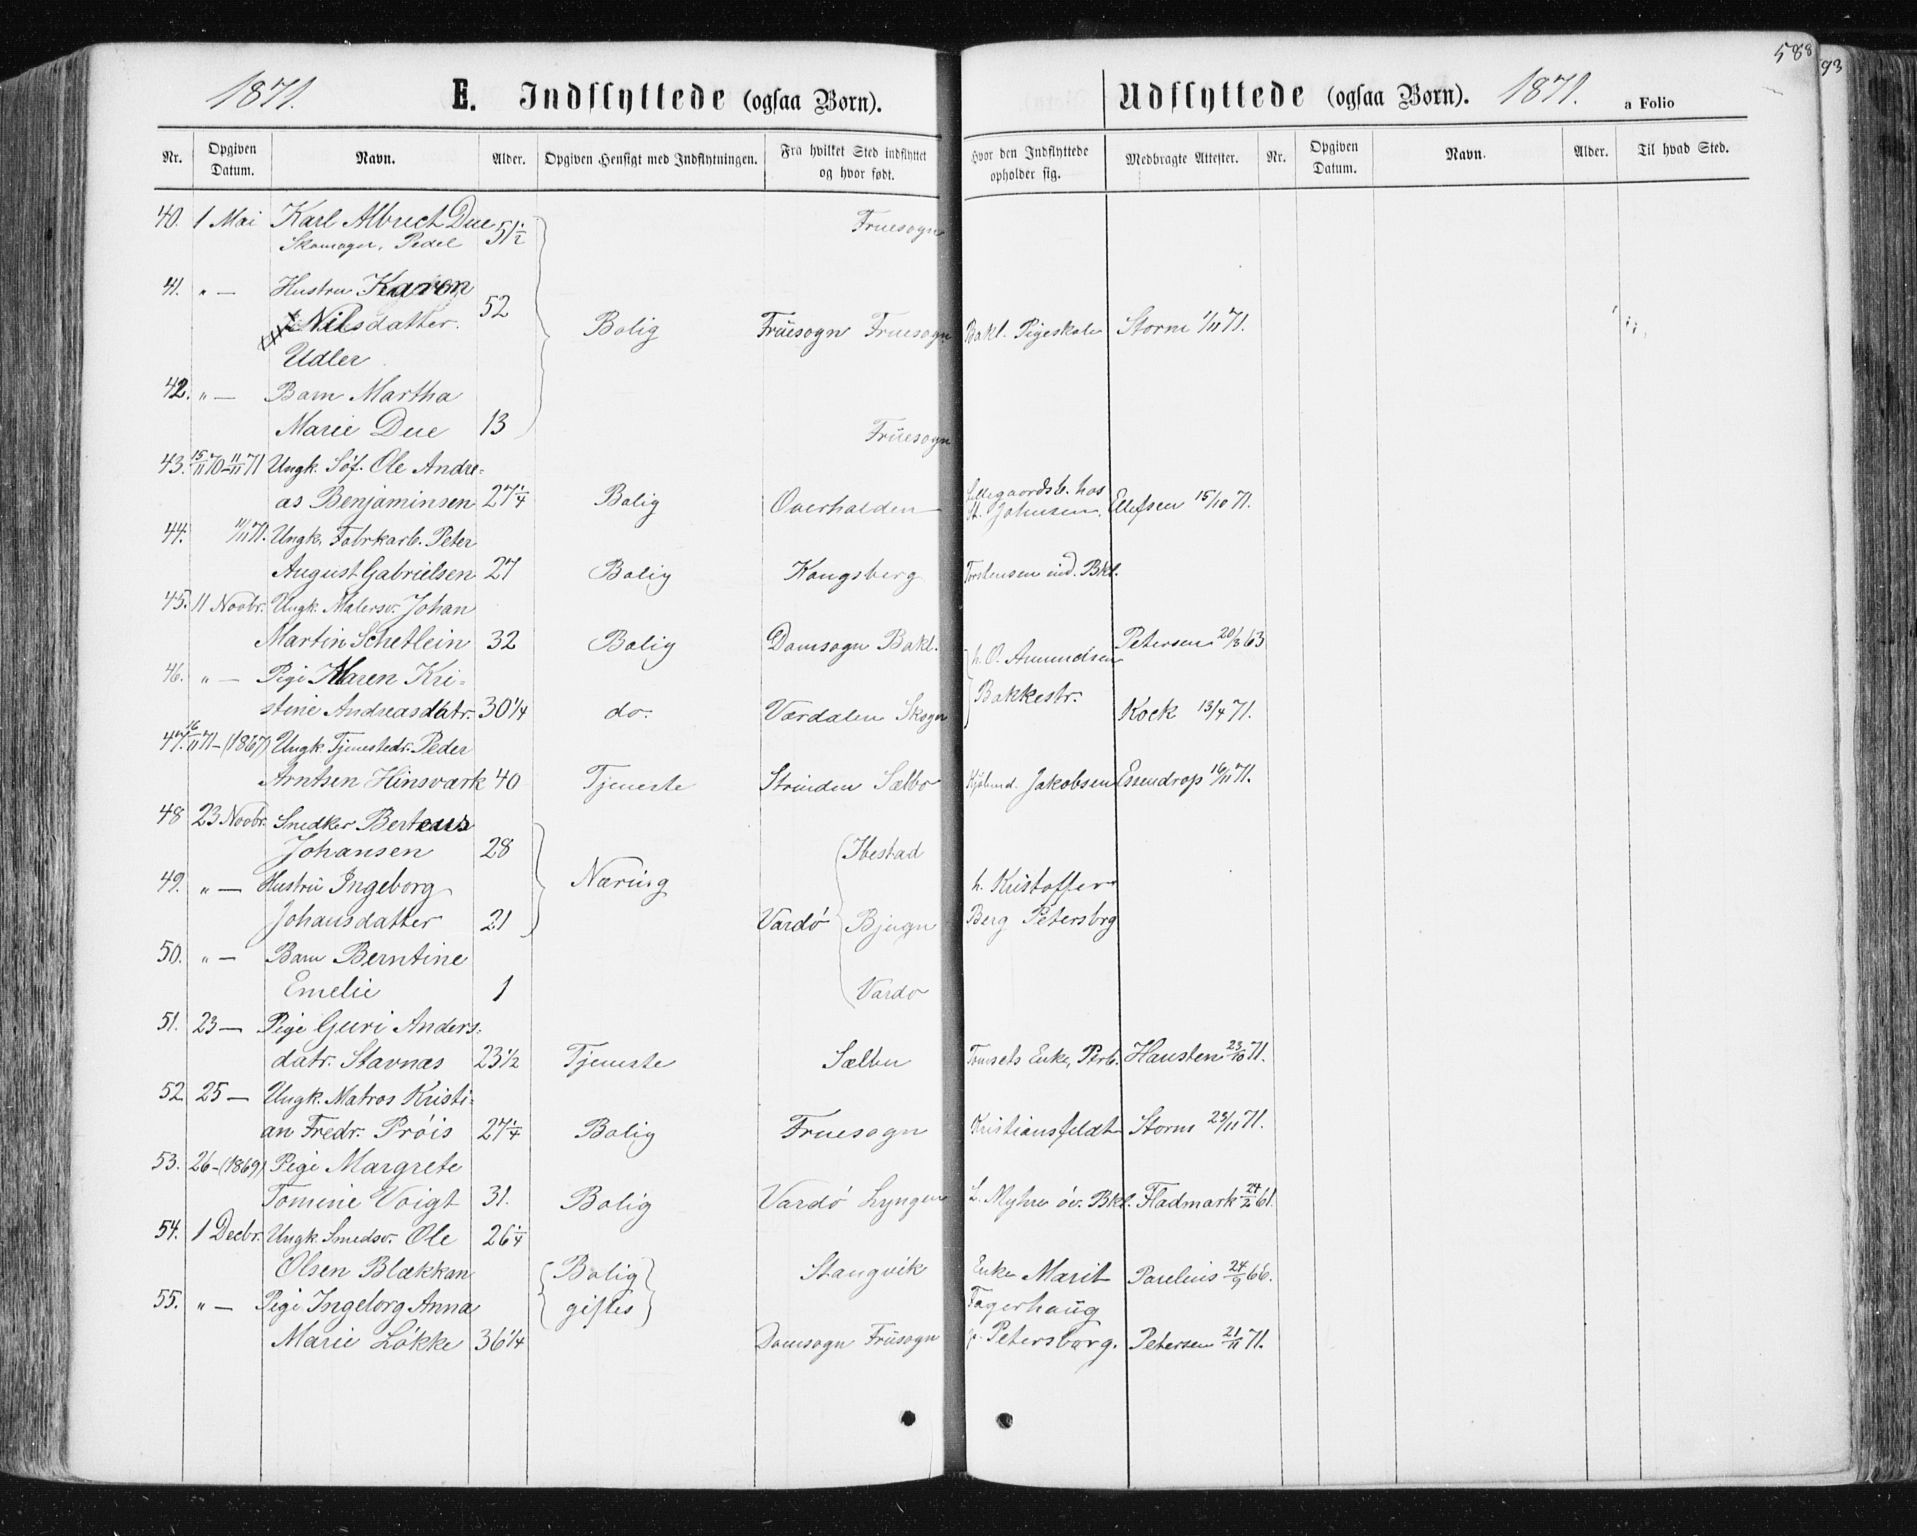 1871. E. Indflyttede (ogsaa Børn). Udflyttede (ogsaa Børn). 1871. a Folio 588 93
Nr. Opgiven Datum. Navn. Alder. Opgiven Hensigt med Indflytningen. Fra hvilket Sted indflyttet og hvor født. Hvor den Indflyttede opholder sig. Medbragte Attester. Nr. Opgiven Datum. Navn. Alder. Til hvad Sted.
40. 1 Mai Karl Albrect Due 51½ Fruesogn
Skomager, Pedel
41. " — Hustru Karen 52
Nilsdatter. Bolig Fruesogn Fruesogn Bakl. Pigeskole Storm 1/11 71.
Udler
42. " — Barn Martha
Marie Due 13 Fruesogn
43. 15/11 70 – 11/11 71 Ungk. Søf. Ole Andre-
as Benjaminsen 27¼ Bolig Overhalden hos St. Johnsen. Ellefsen 15/10 71.
44. 11/11 71. Ungk. Fabrkarb. Peter
August Gabrielsen 27 Bolig Kongsberg Torstensen ind. Bkl.
45. 11 Novbr. Ungk. Malersv. Johan
Martin Schetlein 32 Bolig Domsogn Bakl. h. O. Amundsen Petersen 20/3 63
46. " — Pige Maren Kri-
stine Andreasdatr. 30¼ do. Værdalen Skogn Bakkestr. Kock 13/4 71.
47. 16/11 71 – (1867) Ungk. Tjenestedr. Peder
Arntsen Hinsværk 40 Tjeneste Strinden Sælbo Jakobsen Essendrop 16/11 71.
48 23 Novbr. Snedker Berteus
Johansen 28 Ibestad
49. " — Hustru Ingeborg Næring h. Kristoffer
Johansdatter 21 Vardö Bjugn Berg Petersbrg
50. " — Barn Berntine
Emelie 1 Vardø
51. 23 — Pige Guri Anders-
datr. Stavnæs 23½ Tjeneste Sælbu Tomsets Enke, Petb. Hansteen 23/10 71.
52. 25 — Ungk. Matros Kristi-
an Fredr. Pröis 27¼ Bolig Fruesogn Kristiansfeldt Storm 23/11 71.
53. 26 – (1869) Pige Margrete
Tomine Voigt 31. Bolig Vardö Lyngen L. Myhre öv. Bkl. Fladmark 24/2 61.
54. 1 Decbr. Ungk. Smedsv. Ole 26¼
Olsen Blækkan Bolig Stangvik Enke Marit Parelius 24/9 66.
55. " — Pige Ingeborg Anna giftes Fagerhaug
Marie Løkke 36¼ Domsogn Frusogn Petersborg. Petersen 21/11 71.